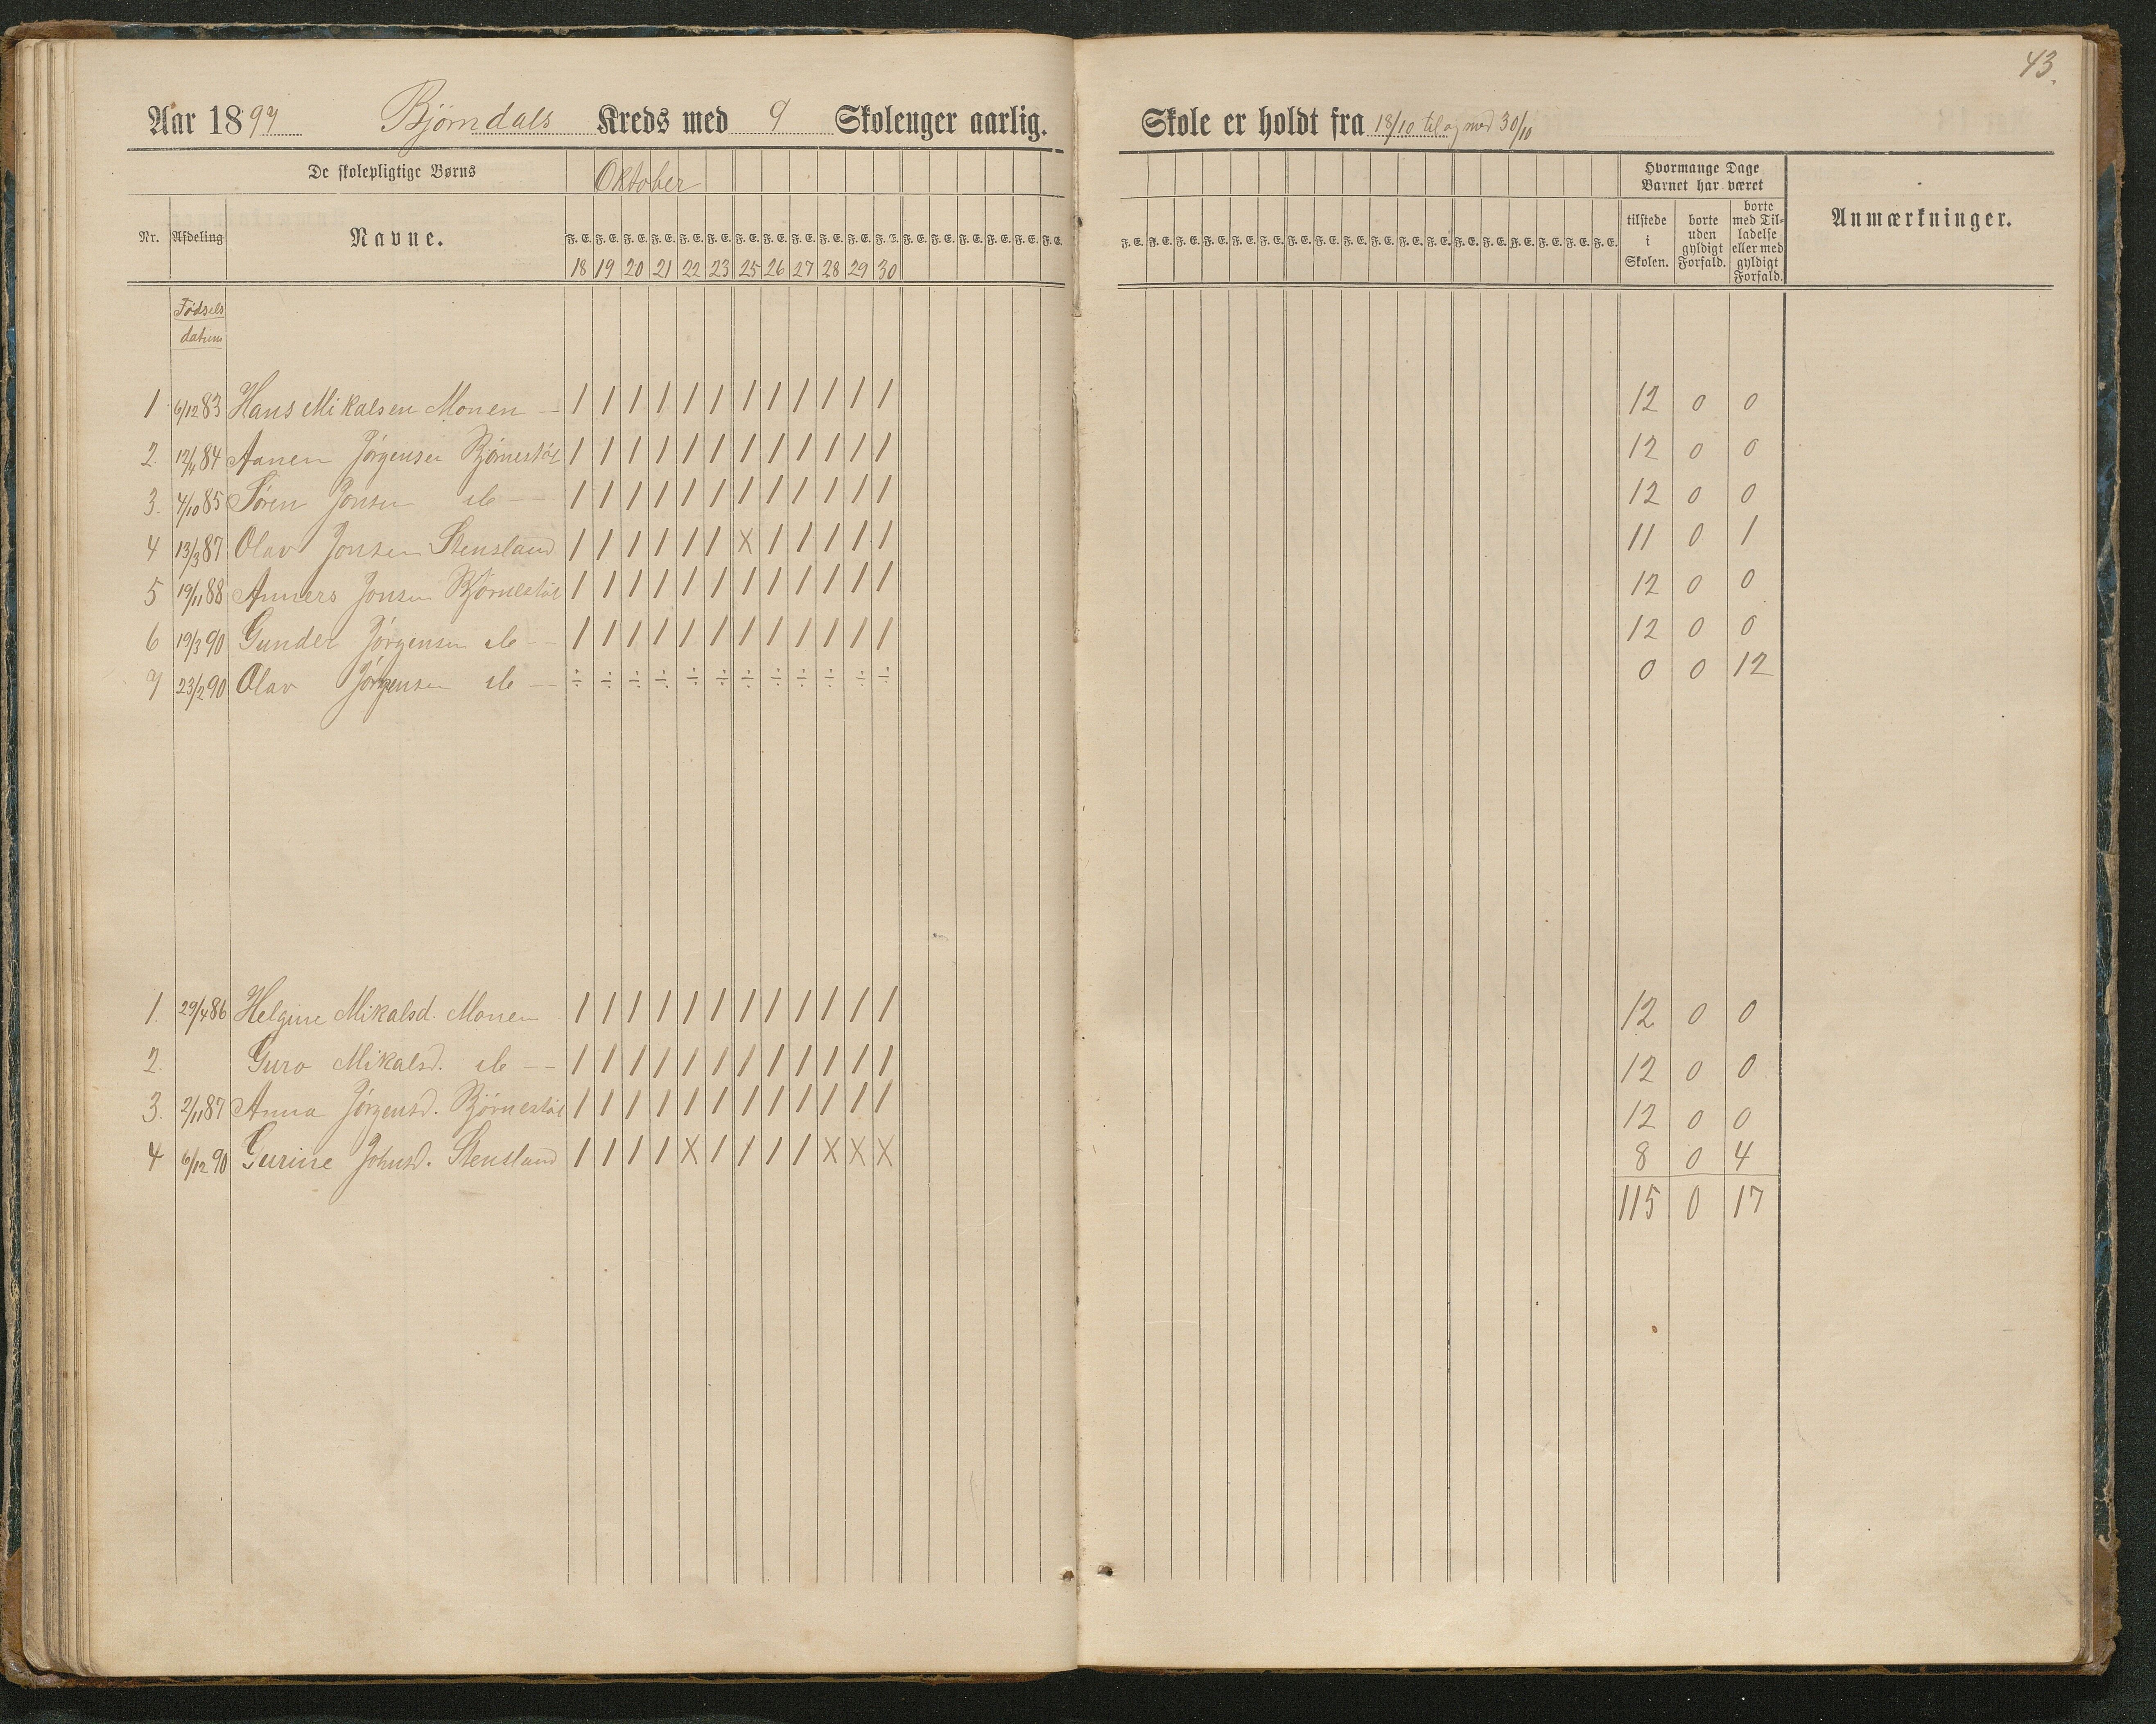 43.
Aar 1897 Bjørndals Kreds med 9 Skoleuger aarlig. Skole er holdt fra 18/10 til og med 30/10
De skolepligtige Børns Oktober Hvormange Dage Barnet har været
Nr. Afdeling Navne. F. E. F. E. F. E. F. E. F. E. F. E. F. E. F. E. F. E. F. E. F. E. F. E. F. E. F. E. F. E. F. E. F. E. F. E. tilstede i Skolen. borte uden gyldigt Forfald. borte med Tilladelse eller med gyldigt Forfald. Anmærkninger.
18 19 20 21 22 23 25 26 27 28 29 30
Fødsels
datum
1 6/12 83 Hans Mikalsen Monen — / / / / / / / / / / / / 12 0 0
2. 12/4 84 Aanen Jørgensen Bjørnestøl / / / / / / / / / / / / 12 0 0
3. 4/10 85 Søren Jonsen do — / / / / / / / / / / / / 12 0 0
4 13/3 87 Olav Jonsen Stensland / / / / / / X / / / / / 11 0 1
5 19/11 88 Anners Jonsen Bjørnestøl / / / / / / / / / / / / 12 0 0
6 19/3 90 Gunder Jørgensen do — / / / / / / / / / / / / 12 0 0
7 23/2 90 Olav Jørgensen do — ÷ ÷ ÷ ÷ ÷ ÷ ÷ ÷ ÷ ÷ ÷ ÷ 0 0 12
1. 29/4 86 Helgine Mikalsd. Monen / / / / / / / / / / / / 12 0 0
2. Guro Mikalsd. do — / / / / / / / / / / / / 12 0 0
3. 2/11 87 Anna Jørgensd. Bjørnestøl / / / / / / / / / / / / 12 0 0
4 6/12 90 Gurine Johnsd. Stensland / / / / X / / / / X X X 8 0 4
115 0 17